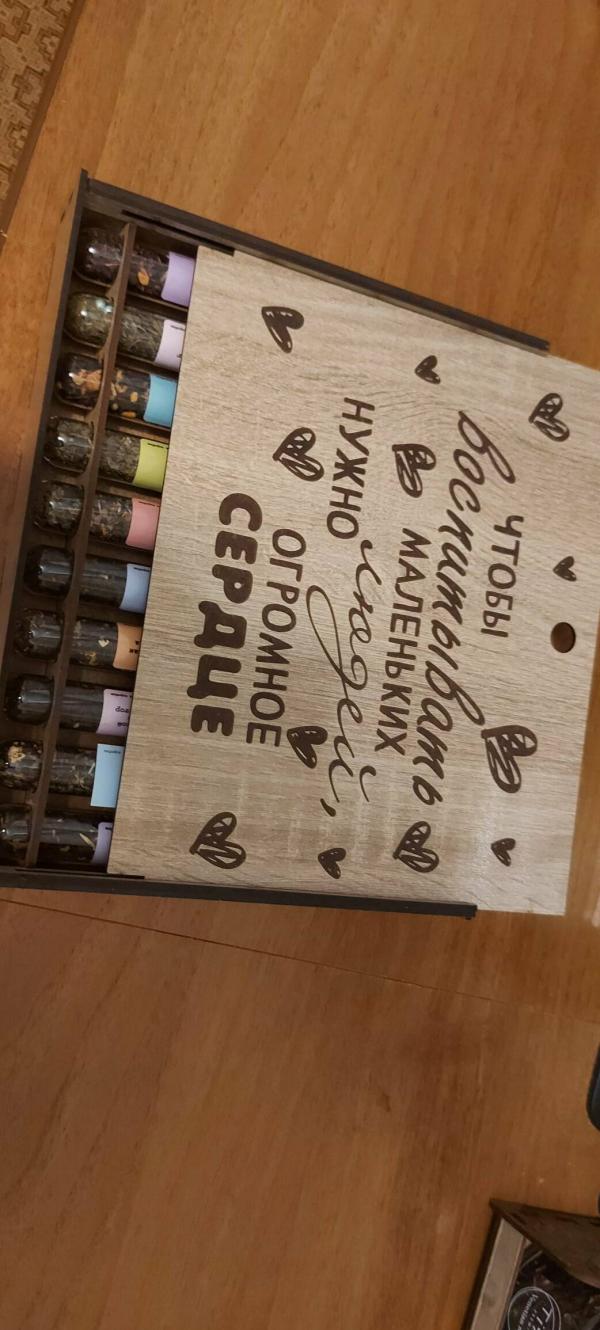 ЧТОБЫ
воспитывать
МАЛЕНЬКИХ
людей,
НУЖНО
ОГРОМНОЕ
СЕРДЦЕ